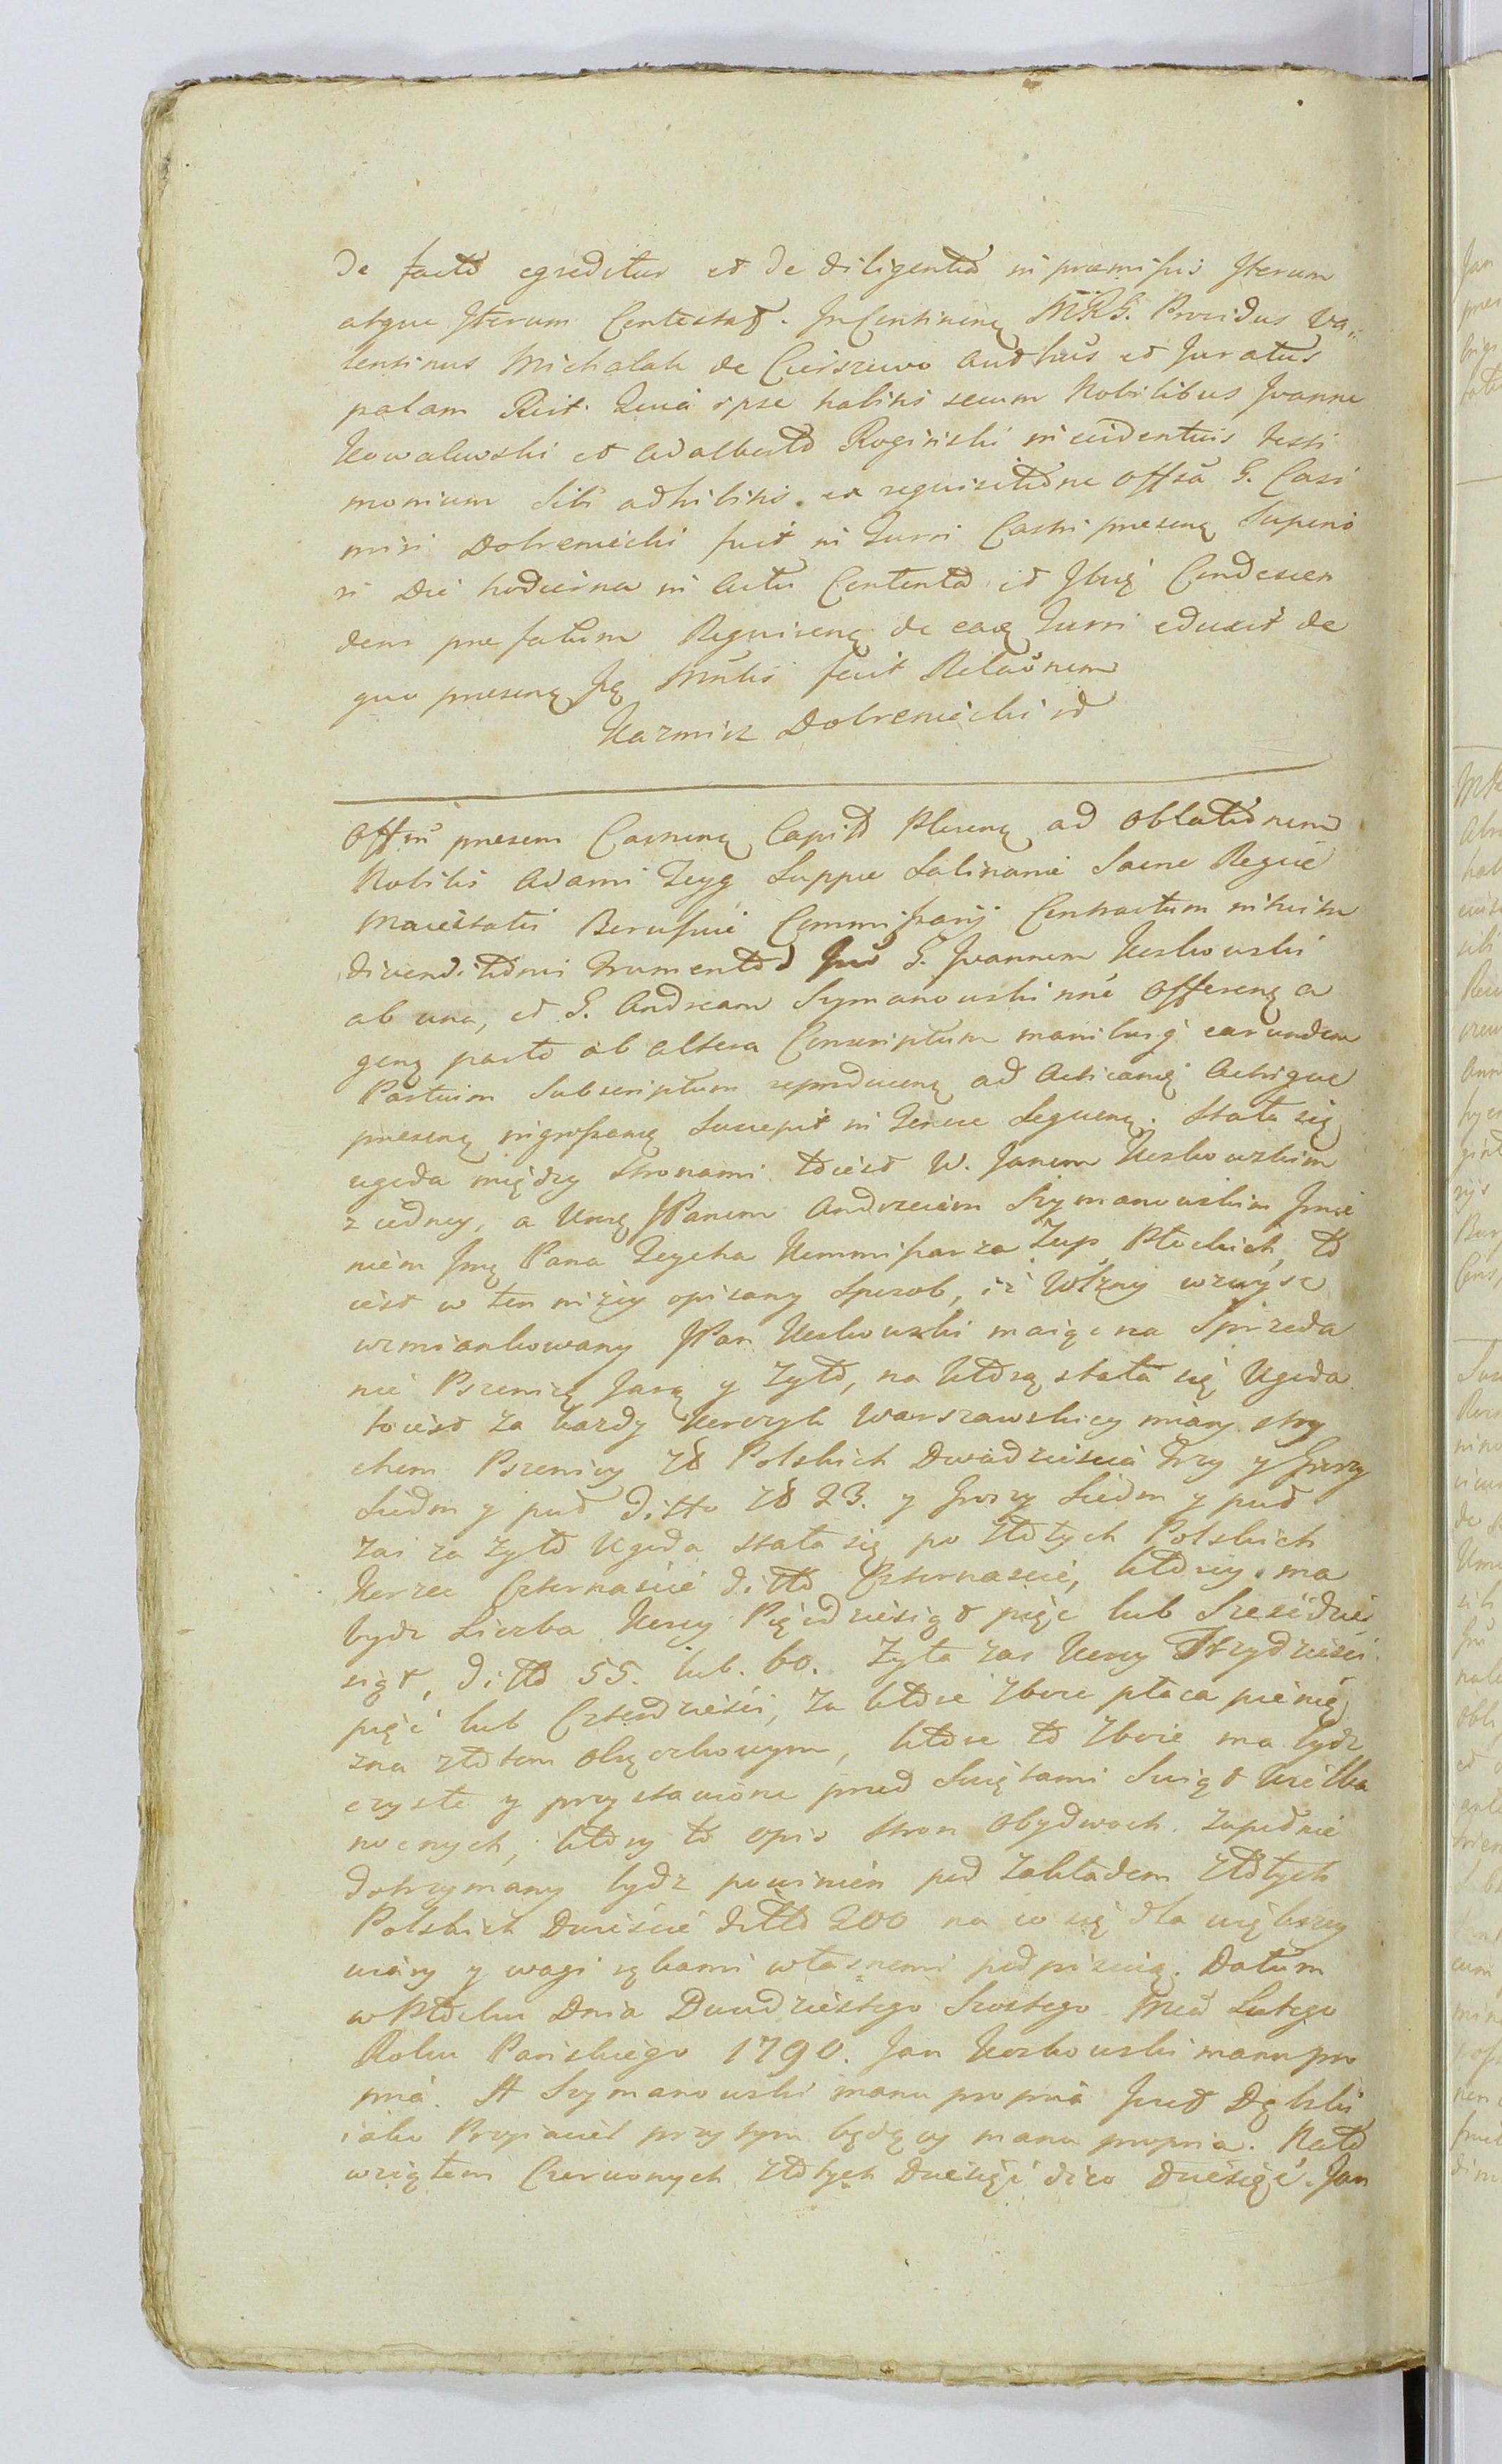 de facto egreditur et de diligentia in præmissis Iterum
atque Iterum Contestat. In Continenę MRG. Providus Va„
lentinus Michalak de Cierszewo Authûs et Juratus
palam Recit. Quia ipse habitis secum Nobilibus Joanne
Kowalewski et Adalberto Rogiński in evidentius testi
monium sibi adhibitis. ex requisitione Offsa G. Casi
miri Dobreniecki fuit in Turri Castri presenę Superio
ri Die hodierna in Actu Contenta et Ibią Condescen
dens prefatum Requirenę de eaą Turri eduxit de
quo presenę Ję Mnlis fecit Relaõnem
Kazmirz Dobreniecki id
Offm presens Castrenę Capitł Plocenę ad Oblationem
Nobilis Adami Zeyg Suppæ Salinariæ Sacræ Regiæ
Maiestatis Borussiæ Commissarij Contractum intuitu
divenditionis Frumentor Int G. Joannem Koskowski
ab una, et G. Andream Szymanowski nne Offerenę a
genę parte ab altera Conscriptum manibusą earundem
Partium Subscriptum reproducenę ad Acticanę Actisque
presenę ingrossanę Suscepit in Tenore Sequenę. Stała się
ugoda między Stronami to iest W. Janem Koskowskim
z iedney, a Urodz JPanem Andrzeiem Szymanowskim Imie
niem Jmę Pana Zeycha Kommissarza Żup Płockich, to
iest w ten niżey opisany Sposob, iż Wżny wzwysz
wzmiankowany JPan Koskowski maiąc na Sprzeda
nie Pszenicę Jarą y Zyto, na ktorą stała się Ugoda
to iest za każdy Korczyk Warszawskiey miary stry
chem Pszenicy Zł Polskich Dwadziescia Trzy y Groszy
Siedm y puł Ditto Zł 23. y Groszy Siedm y puł
Zas za Zyto Ugoda stała się po Złotych Polskich
Korzec Czternaście ditto Czternascie, ktorey ma
bydz Liczba Korcy Pięcdziesiąt pięc lub Szesćdzie
siąt, ditto 55. lub. 60. Zyta zas Korcy Trzydziesci
pięć lub Czterdziesci, za ktore Zboże płaca pienię
zna złotem obrączkowym, ktore to Zboże ma bydz
czyste y przystawione przed Swiętami Swiąt Wielka
nocnych, ktory to opis Stron Obydwoch zupełnie
dotrzymany bydz powinien pod zakładem Złotych
Polskich Dwieście ditto 200 na co się dla większey
wiary y wagi rękami własnemi podpisuią. Datum
w Płocku Dnia Dwudziestego Szostego Msca Lutego
Roku Pańskiego 1790. Jan Koskowski manu pro
pria. A Szymanowski manu propria Jozef Dębski
iako Przyiaciel przytym będący manu propria. Na to
wziąłem Czerwonych Złotych Dziesięć dico Dziesięć. Jan